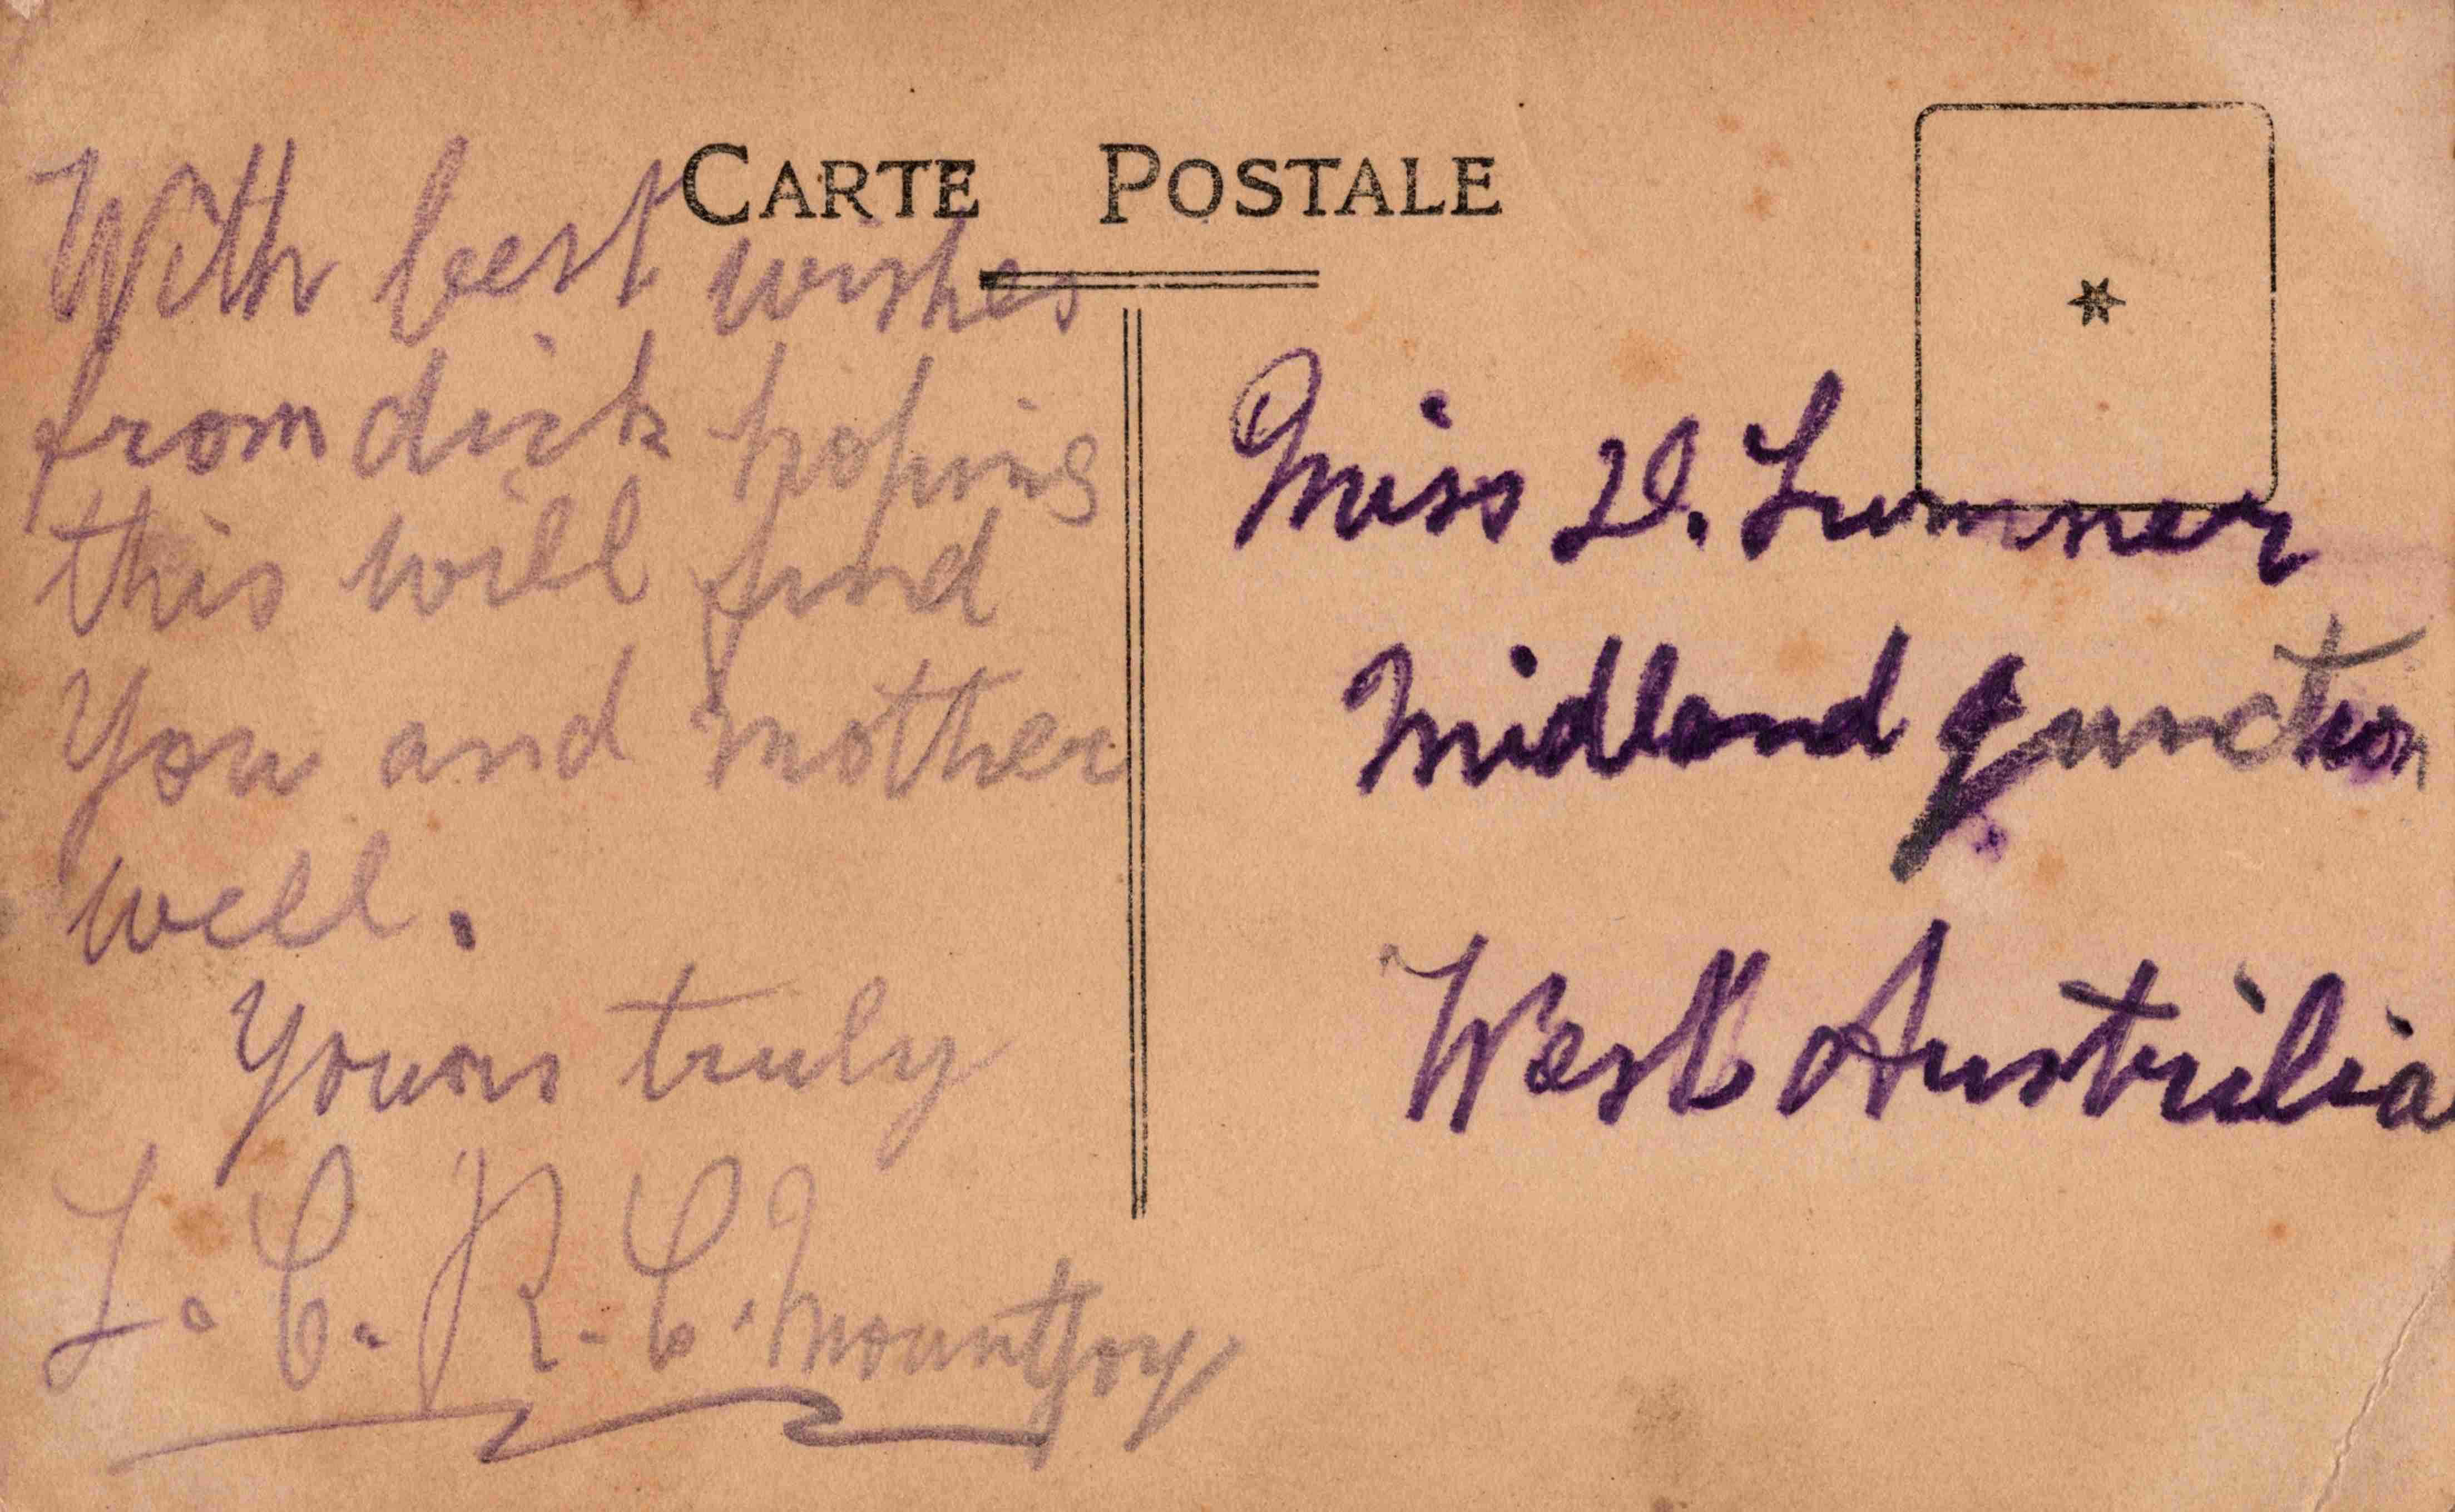 CARTE POSTALE
With best wishes
from dick hoping
this will find
You and mother
well.
Yours truly
L. C. R. C. Mountjoy
Miss D. Lumner
Midland Junction
West Austrilia